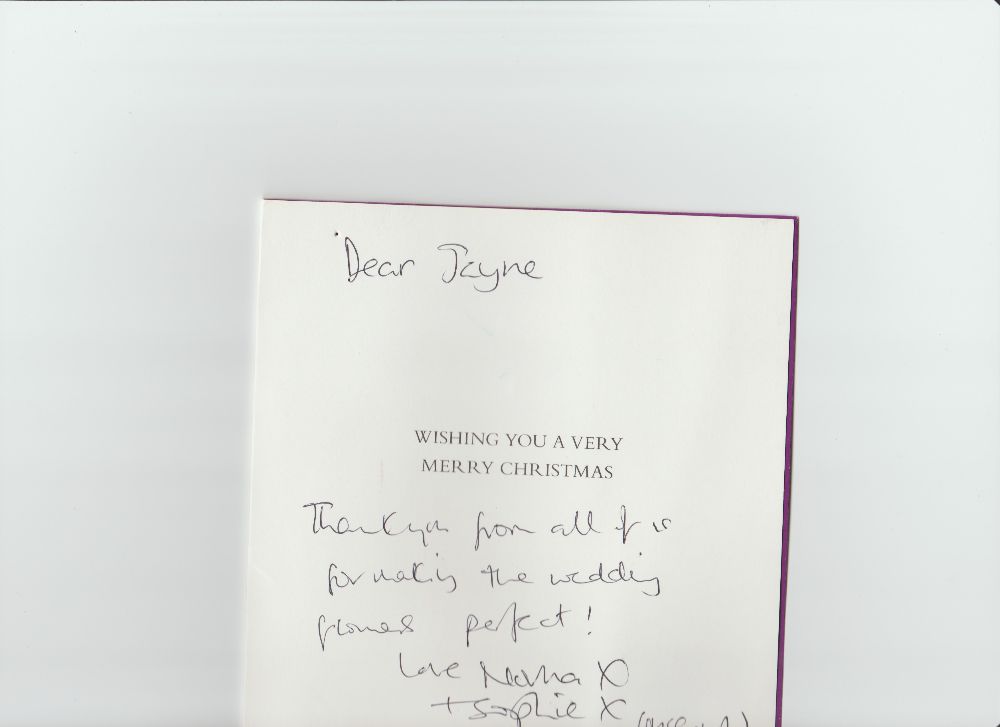 Dear Jayne
WISHING YOU A VERY
MERRY CHRISTMAS
Thankyou from all of us
for making the wedding
flowers perfect!
Love X
+ Sophie X